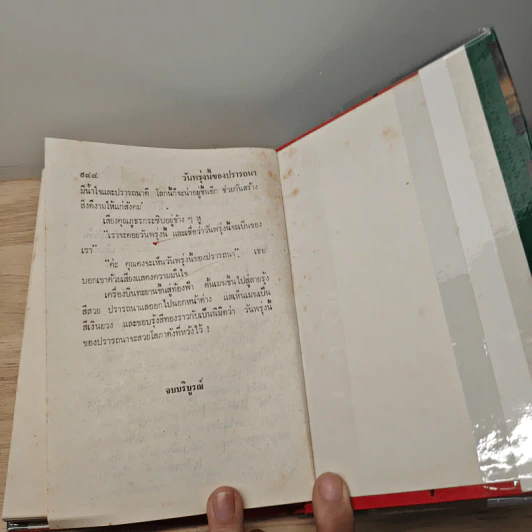 ๘๔๔ วันพรุ่งนี้ของปรารถนา
มีน้ำใจและปรารถนาดี โลกนี้ก็จะน่าอยู่ขึ้นอีก ช่วยกันสร้าง
สิ่งดีงามให้แก่สังคม"
เสียงคุณภูธรกระซิบอยู่ข้าง ๆ หู
"เราจะคอยวันพรุ่งนี้ และเชื่อว่าวันพรุ่งนี้จะเป็นของ
เรา"
"ค่ะ คุณคงจะเห็นวันพรุ่งนี้ของปรารถนา" เธอ
บอกเขาด้วยเสียงแสดงความมั่นใจ
เครื่องบินทะยานขึ้นสู่ท้องฟ้า ดั้นเมฆขึ้นไปสู่สายรุ้ง
สีสวย ปรารถนาแลออกไปนอกหน้าต่าง แลเห็นเมฆเป็น
สีเงินยวง และขอบรุ้งสีทองราวกับเป็นนิมิตว่า วันพรุ่งนี้
ของปรารถนาจะสวยโสภาดังที่หวังไว้ !
จบบริบูรณ์